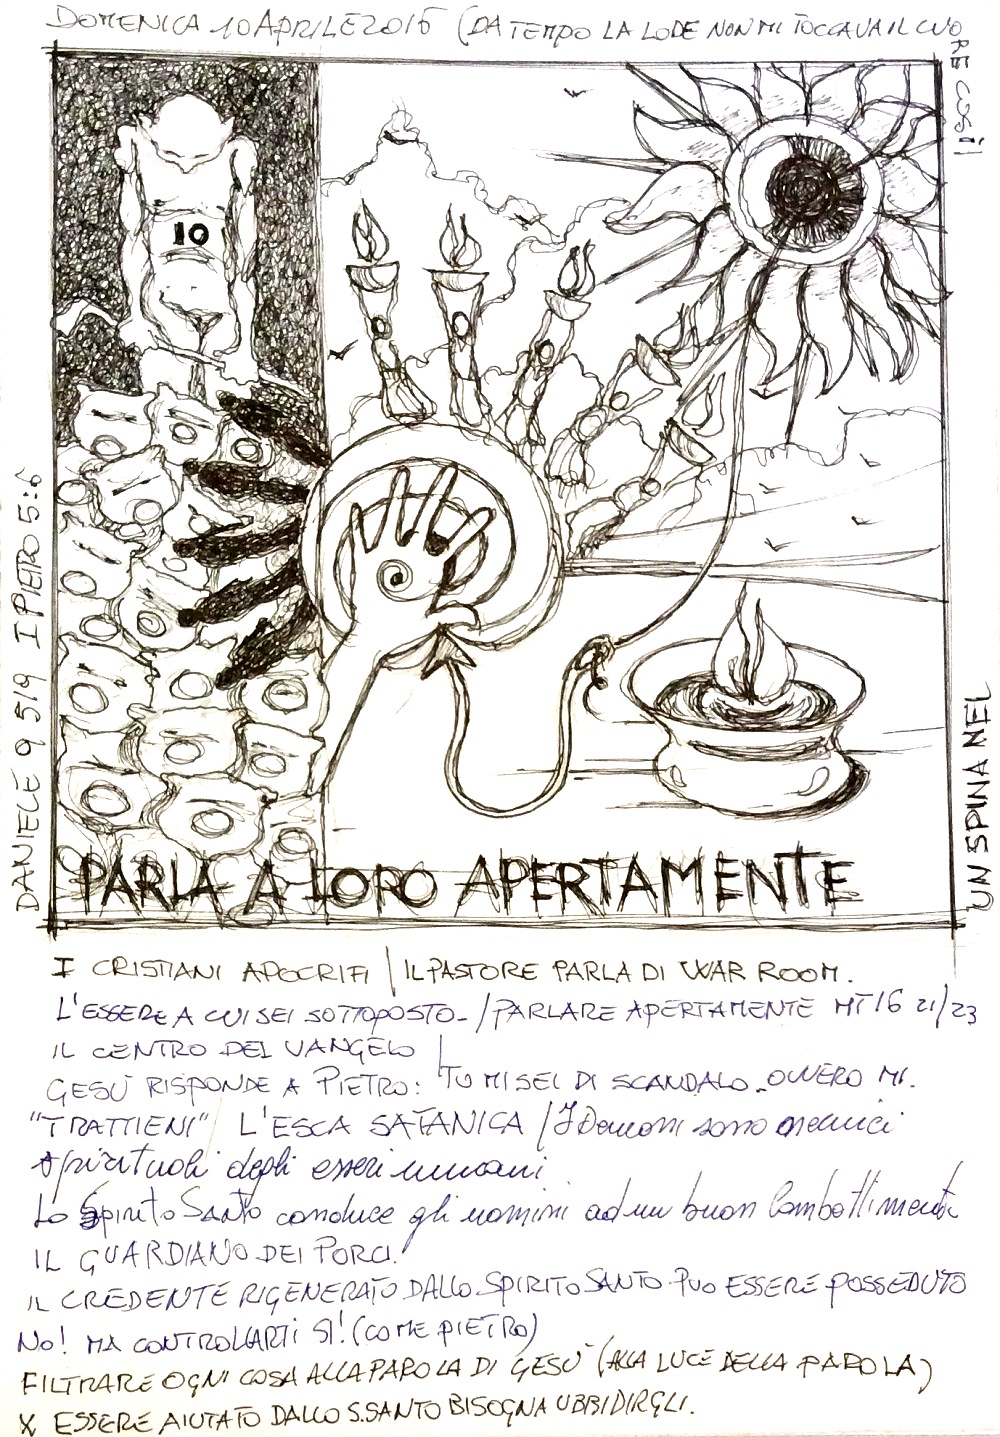 DOMENICA 10 APRILE 2016 (DA TEMPO LA LODE NON MI TOCCAVA IL CUO
RE COSÌ!
10
DANIELE 9 5/9 I PIETRO 5:6
UN SPINA NEL
PARLA A LORO APERTAMENTE
I CRISTIANI APOCRIFI / IL PASTORE PARLA DI WAR ROOM.
L'ESSERE A CUI SEI SOTTOPOSTO - / PARLARE APERTAMENTE MT 16 21/23
IL CENTRO DEL VANGELO
GESÙ RISPONDE A PIETRO: TU MI SEI DI SCANDALO - OVVERO MI.
"TRATTIENI" L'ESCA SATANICA / I Demoni sono nemici
spirituali degli esseri umani
Lo Spirito Santo conduce gli uomini ad un buon Combattimento
IL GUARDIANO DEI PORCI.
IL CREDENTE RIGENERATO DALLO SPIRITO SANTO PUO ESSERE POSSEDUTO
NO! MA CONTROLLARTI SI! (COME PIETRO)
FILTRARE OGNI COSA ALLA PAROLA DI GESÙ (ALLA LUCE DELLA PAROLA)
X ESSERE AIUTATO DALLO S.SANTO BISOGNA UBBIDIRGLI.